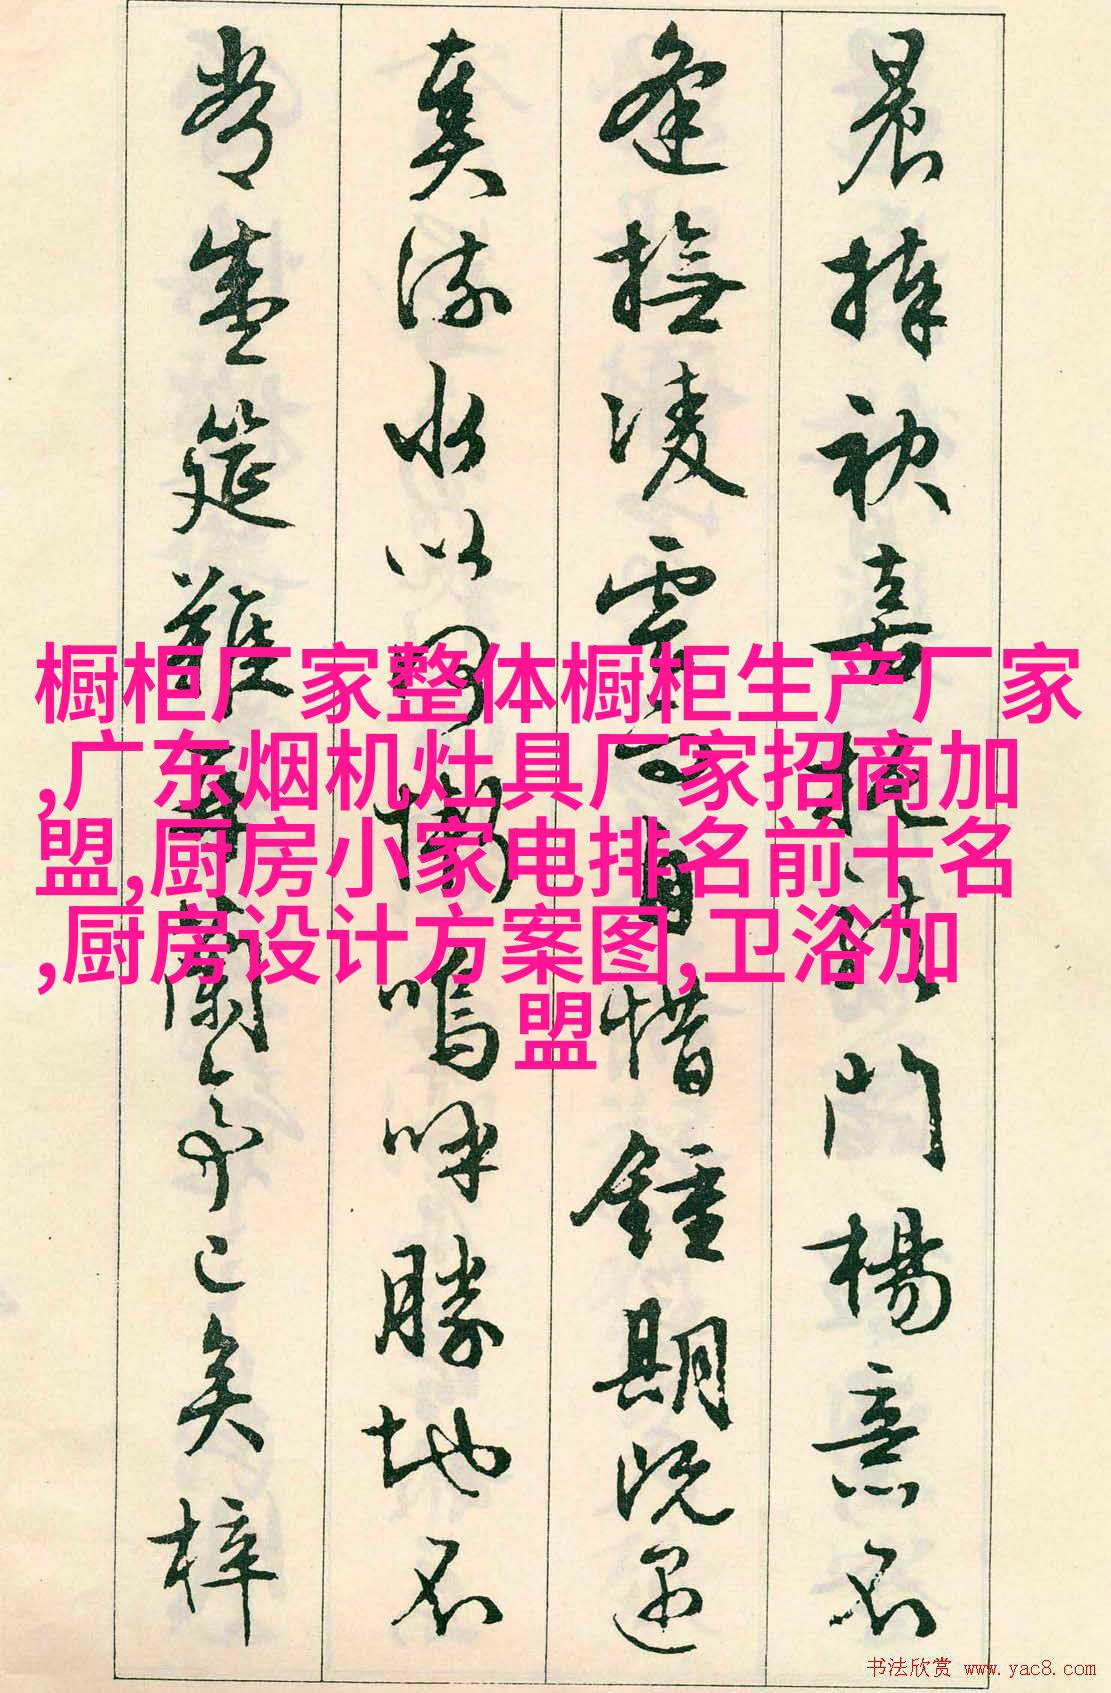 晨捧袂喜托龍門楊意不
逢撫凌雲而自惜鍾期既遇
奏流水以何慚嗚呼勝地不
常盛筵難再蘭亭已矣梓
橱柜厂家整体橱柜生产厂家
,广东烟机灶具厂家招商加
盟,厨房小家电排名前十名
,厨房设计方案图,卫浴加
盟
书法欣赏 www.yac8.com